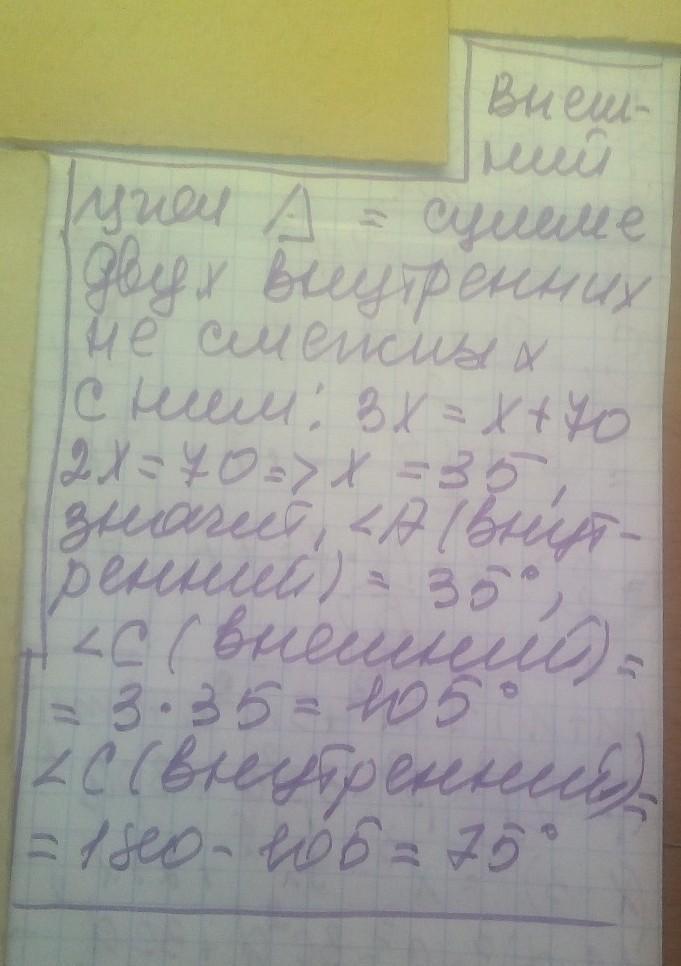 внеш-
ний
угол А = сумме
двух внутренних
не смежных
с ним: 3х = х + 70
2х = 70 => х = 35,
значит, <А (внут-
ренний) = 35°,
<С (внешний) =
= 3 · 35 = 105°
<С (внутренний) =
= 180 - 105 = 75°